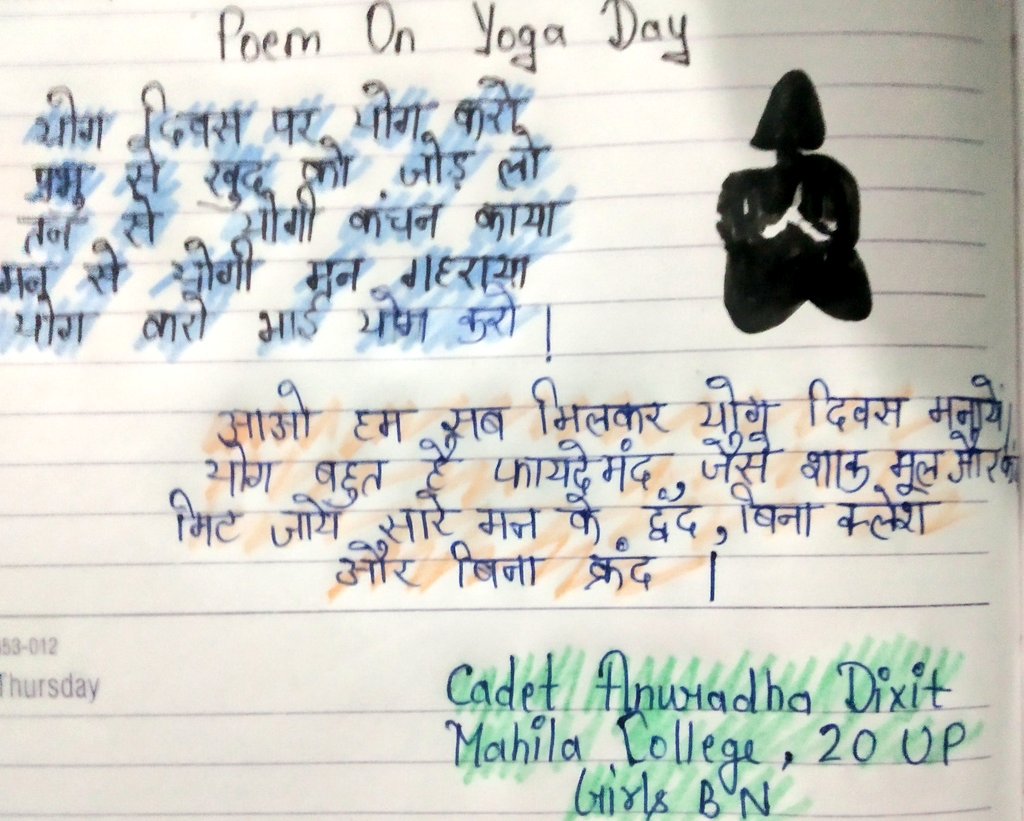 Poem On Yoga Day
योग दिवस पर योग करो
प्रभु से खुद को जोड़ लो
तन से योगी कंचन काया
मन से योगी मन गहराया
योग करो भाई योग करो |
आओ हम सब मिलकर योग दिवस मनाये
योग बहुत है फायदेमंद, जैसे शाक मूल और
मिट जाये सारे मन के द्वंद, बिना क्लेश
और बिना क्रंद |
53-012
Thursday
Cadet Anuradha Dixit
Mahila College, 20 UP
Girls BN